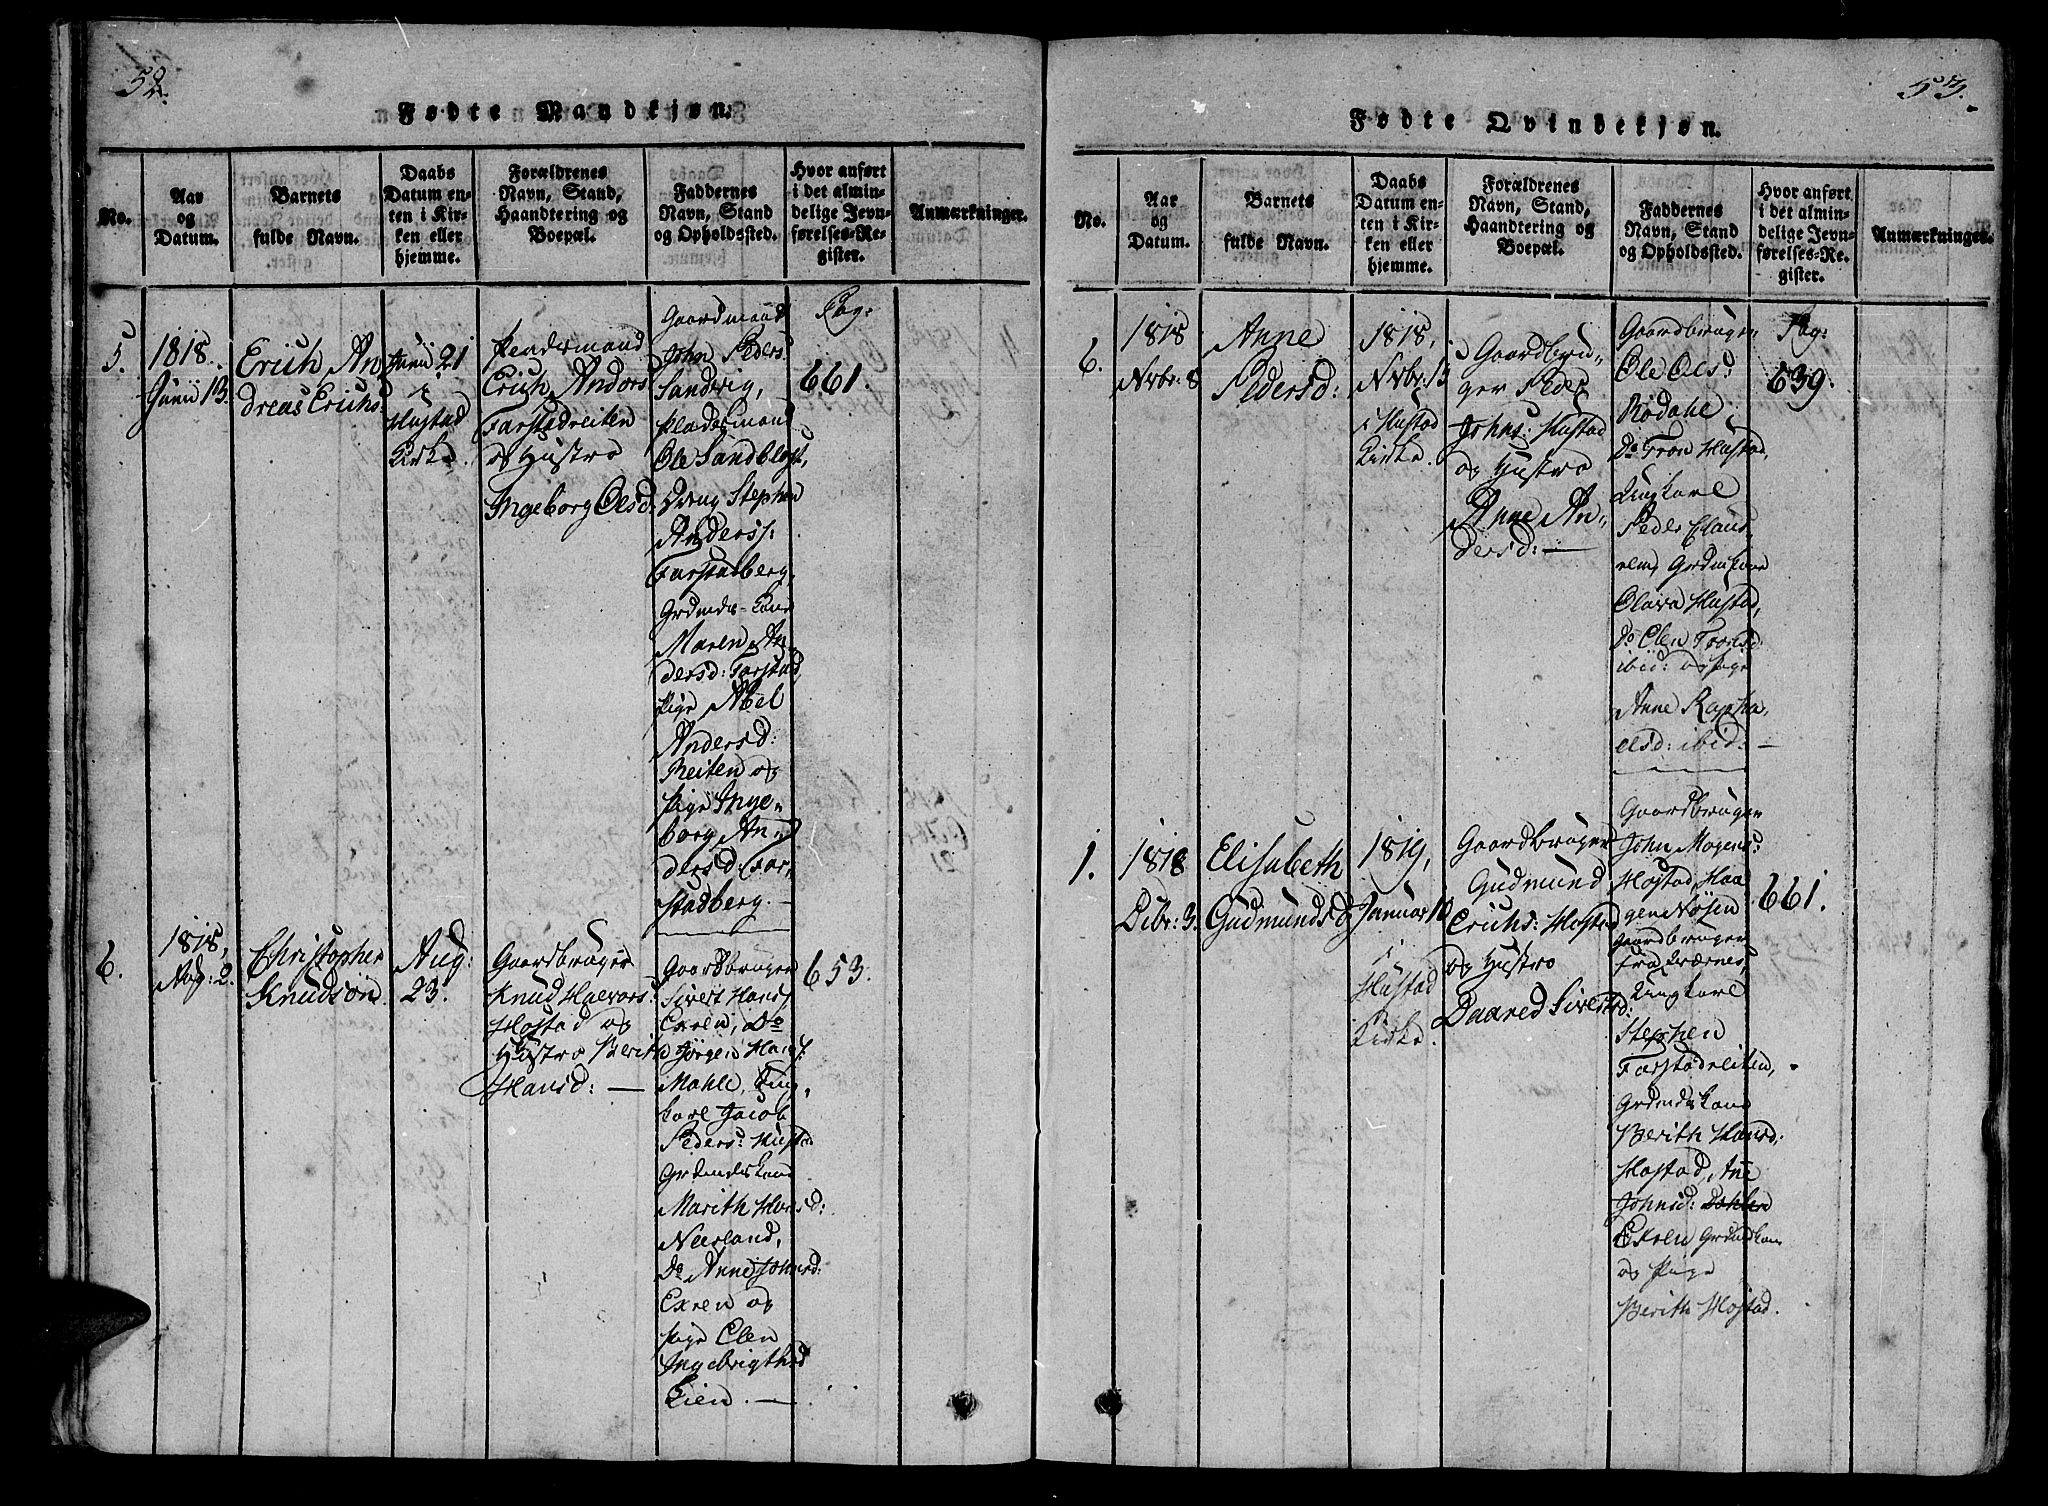 52.
Fødte Mandkjøn.
No.
Aar
og
Datum.
Barnets
fulde Navn.
Daabs
Datum en-
ten i Kir-
ken eller
hjemme.
Forældrenes
Navn, Stand,
Haandtering og
Boepæl.
Faddernes
Navn, Stand
og Opholdssted.
Hvor anført
i det almin-
delige Jevn-
førelses-Re-
gister.
Anmærkninger.
5.
1818.
Junii 13.
Erich An
dreas Erichs:
Junii 21
i
Hustad
Kirke.
Pladsmand
Erich Anders
Farstadreiten
og Hustro
Ingeborg Olsd:
Gaardmand
John Peders:
Sandvig,
Pladsmand
Ole Sandblost,
Dreng Stephen
Anderss:
Farstadberg,
Grdmds-Kone
Maren An
dersd: Farstad,
Pige Abel
Andersd:
Reiten og
Pige Inge-
borg An-
dersd: Far-
stadberg.
Pag:
661.
6.
1818,
Aug: 2.
Christopher
Knudsön.
Aug:
23.
Gaardbruger
Knud Halvors:
Hostad og
Hustro Berith
Hansd:
Gaardbruger
Sivert Hans:
Exren, Do
Jörgen Hans:
Mahle, Ung-
karl Jacob
Peders: Hustad
Grdmands Kone
Marith Hansd:
Neerland,
Do Anne Johnsd:
Exren og
Pige Elen
Ingebrigthsd
Lien.
653.
53.
Fødte Qvindekjøn.
No.
Aar
og
Datum.
Barnets
fulde Navn.
Daabs
Datum en-
ten i Kir-
ken eller
hjemme.
Forældrenes
Navn, Stand,
Haandtering og
Boepæl.
Faddernes
Navn, Stand
og Opholdssted.
Hvor anført
i det almin-
delige Jevn-
førelses-Re-
gister.
Anmærkninger.
6.
1818
Nvbr: 8
Anne
Pedersd:
1818,
Nvbr: 13
i Hustad
Kirke.
Gaardbru-
ger Peder
Johns: Hustad
og Hustro
Anne An-
dersd:
Gaardbruger
Ole Ols:
Rödahl,
Do Tron Hustad,
Ungkarl
Peder
Olava Hustad,
Do Elen Tronsd
ibid: og Pige
Anne Rapha-
elsd: ibid:
Pag:
639.
1.
1818
Dcbr: 3.
Elisabeth
Gudmundsd
1819,
Januar 10
i
Hustad
Kirke.
Gaardbruger
Gudmund
Erichs: Hostad
og Hustro
Daared Sivertsd:
Gaardbruger
John Mogens:
Hostad, Haa
gen Nösen
Gaardbruger
fra Qværnes,
Ungkarl
Stephen
Farstadreiten,
Grdmds Kone
Berith Hansd:
Hostad, Ane
Johnsd:
Exren Grdmdkone
og Pige
Berith Hostad.
661.